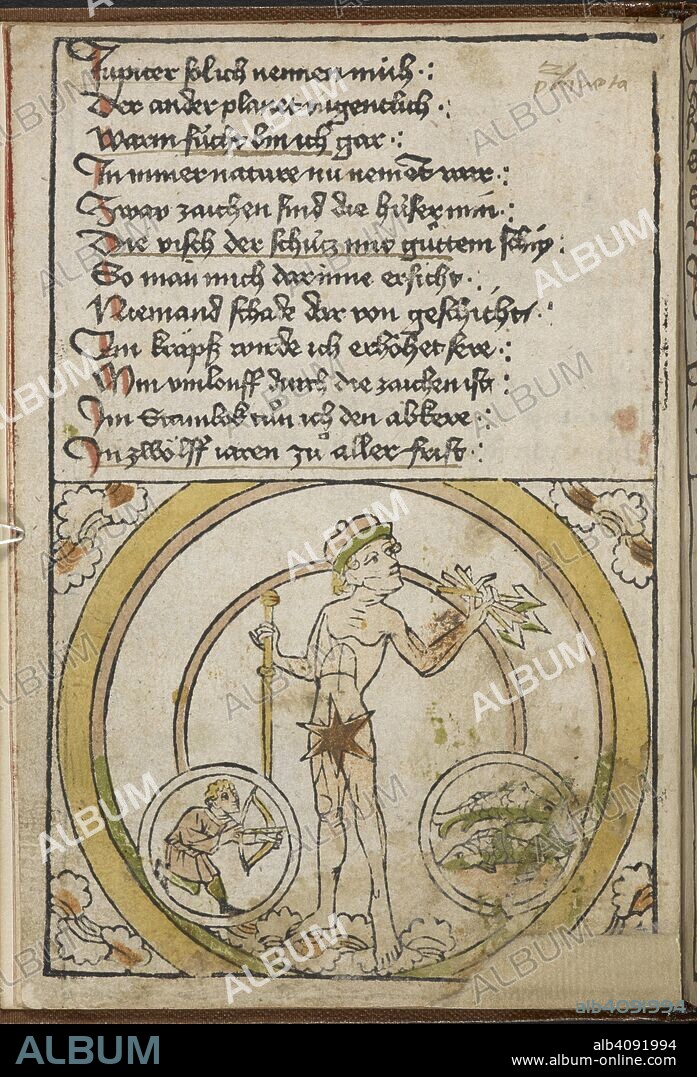 Jupiter solich nennen mich :
Der ander planet tugentlich ·
Warm fücht bin ich gar ·:
In miner nature nu nement war :
Zway zaichen sind die hüser min :
Die visch der schütz mit güttem schin :
So man mich dar inne ersicht ·
Niemand schade dar von geschicht ·
Im kräpß wurde ich erhöhet sere :
Min vmlouff durch die zaichen ist :
Im Stainbok tůn ich den abkere :
In zwölff iaren zů aller frist :
planeta
ALBUM
alb4091994
ALBUM
alb4091994
www.album-online.com